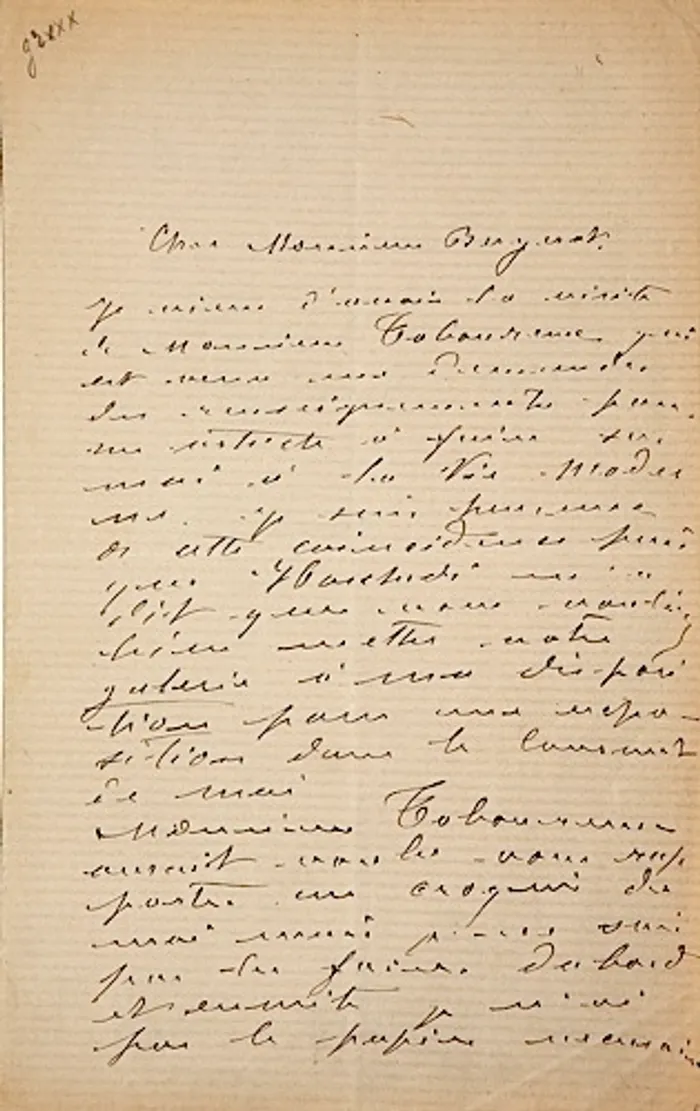 Cher Monsieur Bergerat,
Je viens d'avoir la visite
de Monsieur Taboureux qui
est venu me demander
des renseignements pour
un article à faire sur
moi à la Vie Moder
ne. Je suis heureux
de cette coincidence puis
que Hoschedé m'a
dit que vous vouliez
bien mettre votre
galerie à ma disposi
tion pour une expo-
sition dans le courant
de mai
Monsieur Taboureux
aurait voulu vous rap
porter un croquis de
moi mais je ne sais
pas les faire. d'abord
et ensuite je n'ai
pas le papier nécessaire